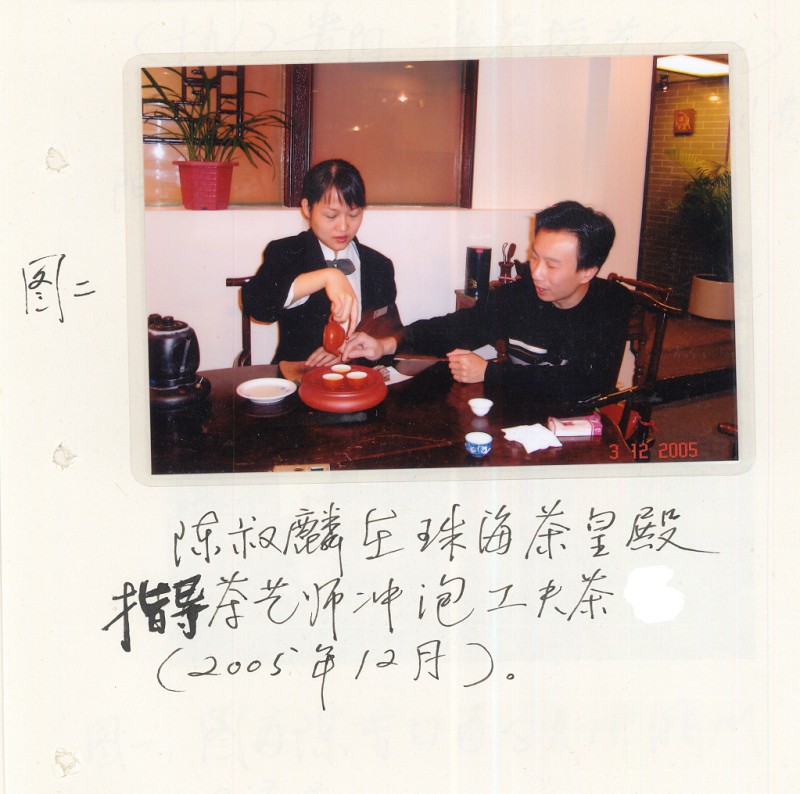 图二
3 12 2005
陈叔麟在珠海茶皇殿
指导茶艺师冲泡工夫茶
(2005年12月)。